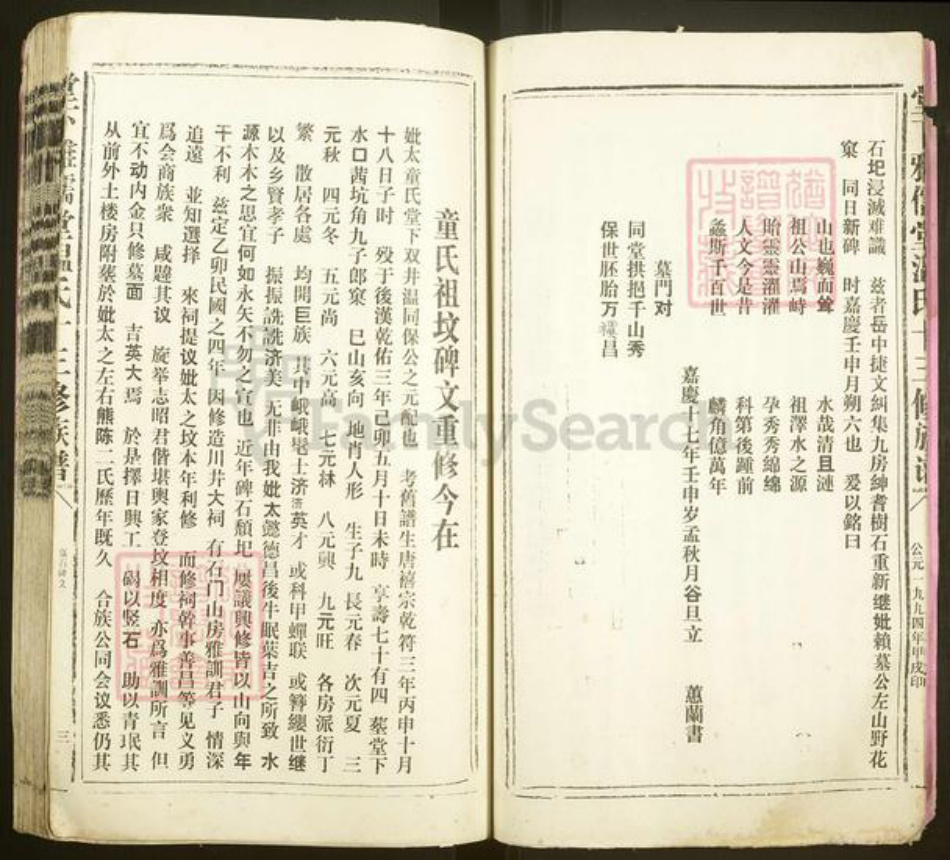 石圯浸滅难識　兹者岳中捷文糾集九房紳耆樹石重新继妣賴墓公左山野花
窠　同日新碑　时嘉慶壬申月朔六也　爰以銘曰
山也巍而耸　水哉清且涟
祖公山焉峙　祖澤水之源
貽靈靈濯濯　孕秀秀綿綿
人文今是昔　科第後踵前
螽斯千百世　麟角億萬年
嘉慶十七年壬申岁孟秋月谷旦立　蕙蘭書
墓門对
同堂拱挹千山秀
保世胚胎万禩昌
公元一九九四年甲戌印
童氏祖坟碑文重修今在
妣太童氏堂下双井温同保公之元配也　考舊譜生唐禧宗乾符三年丙申十月
十八日子时　殁于後漢乾佑三年己卯五月十日未時　享壽七十有四　塟堂下
水口茜坑角九子郎窠　巳山亥向　地肖人形　生子九　長元春　次元夏　三
元秋　四元冬　五元尚　六元高　七元林　八元興　九元旺　各房派衍丁
繁　散居各處　均開巨族　其中峨峨髦士济济英才　或科甲蟬联　或簪纓世继
以及乡賢孝子　振振詵詵济美　无非由我妣太懿德昌後牛眠葉吉之所致　水
源木木之思宜何如永矢不勿之宣也　近年碑石頹圯　屡議興修皆以山向與年
干不利　兹定乙卯民國之四年　因修造川井大祠　有石门山房雅訓君子　情深
追遠　並知選择　來祠提议妣太之坟本年利修　而修祠幹事善昌等见义勇
爲会商族衆　咸韙其议　旋举志昭君偕堪輿家登坟相度　亦爲雅訓所言　但
宜不动内金只修墓面　吉英大焉　於是擇日興工　碣以竖石　助以青珉其
从前外土楼房附塟於妣太之左右熊陈二氏歷年既久　合族公同会议悉仍其
三